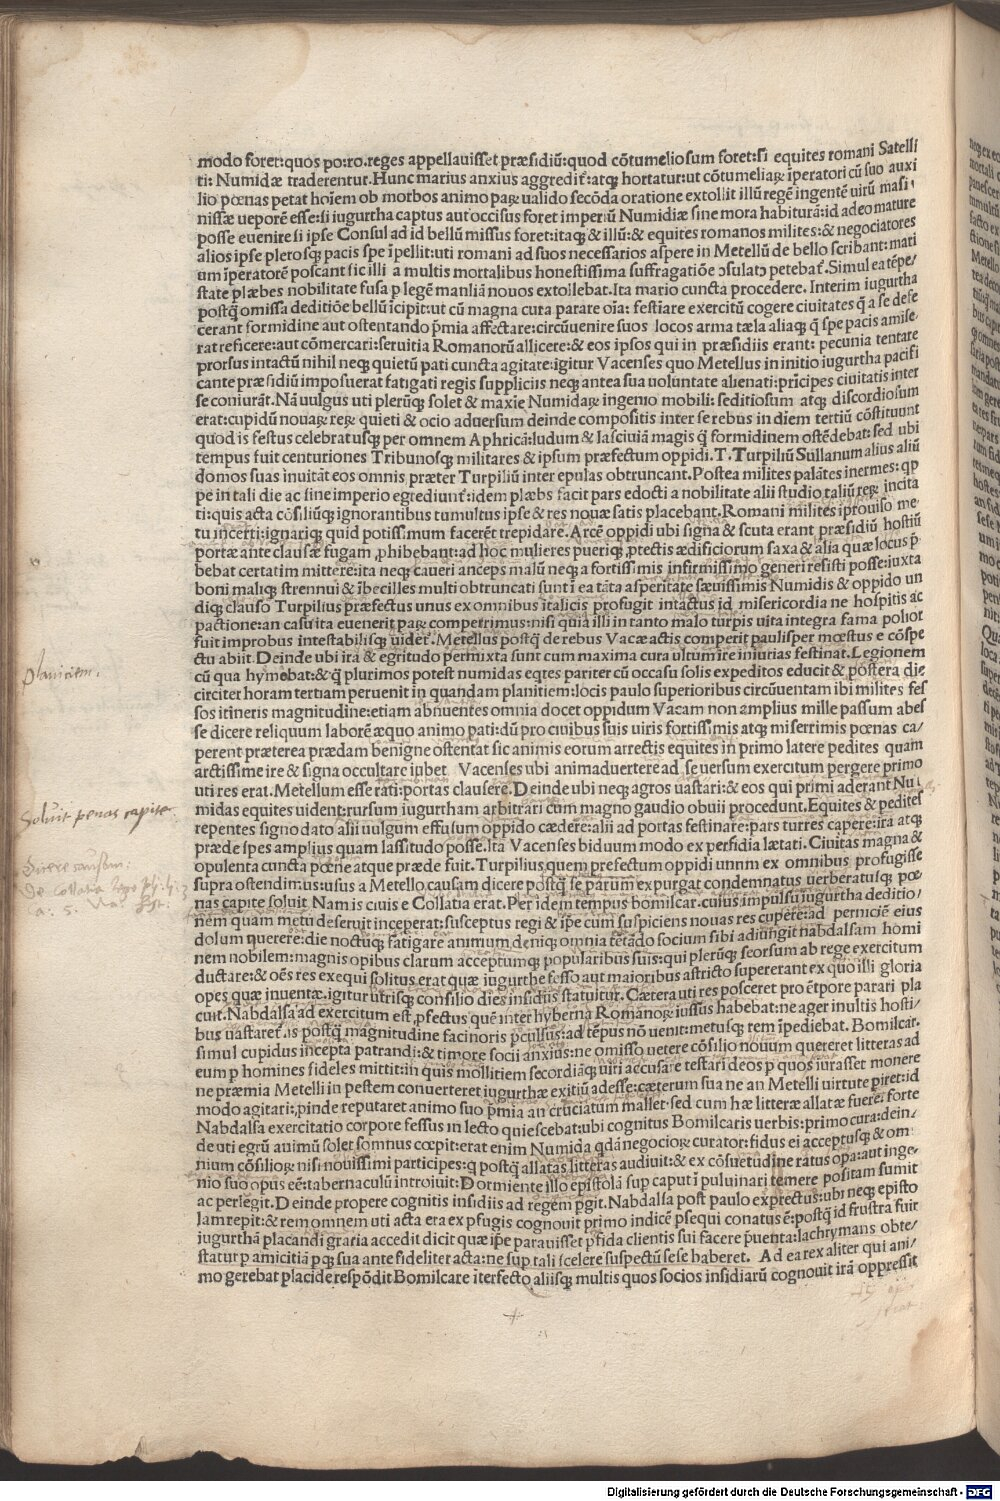 modo foret:quos po:ro.reges appellauisset præsidiū:quod cōtumeliosum foret:si equites romani Satelli
ti: Numidæ traderentur.Hunc marius anxius aggredit̄:atq; hortatur:ut cōtumeliaꝝ īperatori cū suo auxi
lio pœnas petat hoīem ob morbos animo paꝝ ualido secōda oratione extollit illū regē ingentē uirū masi
nissæ ueporē esse:si iugurtha captus aut occisus foret imperiū Numidiæ sine mora habiturā:id adeo mature
posse euenire si ipse Consul ad id bellū missus foret:itaq; & illū:& equites romanos milites:& negociatores
alios ipse plerosq; pacis spe īpellit:uti romani ad suos necessarios aspere in Metellū de bello scribant:mari
um īperatorē poscant sic illi a multis mortalibus honestissima suffragatiōe ↄsulatↄ petebat̄.Simul ea tēpe/
state plæbes nobilitate fusa p legē manliā nouos extollebat.Ita mario cuncta procedere. Interim iugurtha
postq̄ omissa deditiōe bellū īcipit:ut cū magna cura parare oīa: festīare exercitū cogere ciuitates q̄ a se defe
cerant formidine aut ostentando p̄mia affectare:circūuenire suos locos arma tæla aliaq; q̄ spe pacis amise
rat reficere:aut cōmercari:seruitia Romanorū allicere:& eos ipsos qui in præsidiis erant: pecunia tentare
prorsus intactū nihil neq; quietū pati cuncta agitare:igitur Vacenses quo Metellus in initio iugurtha pacifi
cante præsidiū imposuerat fatigati regis suppliciis neq; antea sua uoluntate alienati:prīcipes ciuitatis inter
se coniurāt.Nā uulgus uti plerūq; solet & maxīe Numidaꝝ ingenio mobili:seditiosum atq; discordiosum
erat:cupidū nouaꝝ reꝝ quieti & ocio aduersum deinde compositis inter se rebus in diem tertiū cōstituunt
quod is festus celebratusq; per omnem Aphricā:ludum & lasciuiā magis q̄ formidinem ostēdebat:sed ubi
tempus fuit centuriones Tribunosq; militares & ipsum præfectum oppidi.T.Turpiliū Sullanum alius aliū
domos suas īnuitāt eos omnis præter Turpiliū inter epulas obtruncant.Postea milites palātes inermes:qp
pe in tali die ac sine imperio egrediunt̄:idem plæbs facit pars edocti a nobilitate alii studio taliū reꝝ incita
ti:quis acta cōsiliūq; ignorantibus tumultus ipse & res nouæ satis placebant.Romani milites īprouiso me
tu incerti:ignariq; quid potissimum facerēt trepidare.Arcē oppidi ubi signa & scuta erant præsidiū hostiū
portæ ante clausæ fugam ꝓhibebant:ad hoc mulieres pueriq; ꝓtectis ædificiorum saxa & alia quæ locus p̄
bebat certatim mittere:ita neq; caueri anceps malū neq; a fortissimis infirmissimo generi resisti posse:iuxta
boni maliq; strennui & ībecilles multi obtruncati sunt ī ea tāta asperitate sæuissimis Numidis & oppido un
diq; clauso Turpilius præfectus unus ex omnibus italicis profugit intactus id misericordia ne hospitis ac
pactione:an casu ita euenerit paꝝ compertmus:nisi quia illi in tanto malo turpis uita integra fama potior
fuit improbus intestabilisq; uidet̄.Metellus postq̄ de rebus Vacæ actis comperit paulisper mœstus e cōspe
ctu abiit.Deinde ubi ira & egritudo permixta sunt cum maxima cura ultum ire iniurias festinat.Legionem
cū qua hymēbat:& q̄ plurimos potest numidas eqtes pariter cū occasu solis expeditos educit & postera die
circiter horam tertiam peruenit in quandam planitiem:locis paulo superioribus circūuentam ibi milites fes
sos itineris magnitudine:etiam abnuentes omnia docet oppidum Vacam non amplius mille passum abes
se dicere reliquum laborē æquo animo pati:dū pro ciuibus suis uiris fortissimis atq; miserrimis pœnas ca/
perent præterea prædam benigne ostentat sic animis eorum arrectis equites in primo latere pedites quam
arctissime ire & signa occultare iubet Vacenses ubi animaduertere ad se uersum exercitum pergere primo
uti res erat.Metellum esse rati:portas clausere.Deinde ubi neq; agros uastari:& eos qui primi aderant Nu
midas equites uident:rursum iugurtham arbitrari cum magno gaudio obuii procedunt.Equites & pedites
repentes signo dato alii uulgum effusum oppido cædere:alii ad portas festinare:pars turres capere:ira atq;
præde spes amplius quam lassitudo posse.Ita Vacenses biduum modo ex perfidia lætati.Ciuitas magna &
opulenta cuncta pœne atque præde fuit.Turpilius quem prefectum oppidi unnm ex omnibus profugisse
supra ostendimus:usus a Metello causam dicere postq̄ se parum expurgat condemnatus uerberatusq; pœ
nas capite soluit Nam is ciuis e Collatia erat.Per idem tempus bomilcar.cuius impulsu iugurtha deditio/
nem quam metu deseruit inceperat:susceptus regi & īpe cum suspiciens nouas res cupere:ad perniciē eius
dolum querere:die noctuq; fatigare animum deniq; omnia tētādo socium sibi adiungit nabdalsam homi
nem nobilem:magnis opibus clarum acceptumq; popularibus suis:qui plerūq; seorsum ab rege exercitum
ductare:& oēs res exequi solitus erat quæ iugurthe fesso aut maioribus astricto supererant ex quo illi gloria
opes quæ inuentæ.igitur utrisq; consilio dies insidiis statuitur.Cætera uti res posceret pro ētpore parari pla
cuit.Nabdalsa ad exercitum est ꝓfectus quē inter hyberna Romanoꝝ iussus habebat:ne ager inultis hosti/
bus uastaret̄.is postq̄ magnitudine facinoris pculsus:ad tēpus nō uenit:metusq; rem īpediebat. Bomilcar.
simul cupidus incepta patrandi:& timore socii anxius:ne omisso uetere cōsilio nouum quereret litteras ad
eum p homines fideles mittit:in quis mollitiem secordiāq; uiri accusare testari deos p quos iurasset monere
ne præmia Metelli in pestem conuerteret iugurthæ exitiū adesse:cæterum sua ne an Metelli uirtute piret:id
modo agitari:ꝓinde reputaret animo suo p̄mia an cruciatum mallet.sed cum hæ litteræ allatæ fuerēt forte
Nabdalsa exercitatio corpore fessus in lecto quiescebat:ubi cognitus Bomilcaris uerbis:primo cura:dein/
de uti egrū animū solet somnus cœpit:erat enim Numida qdā negocioꝝ curator:fidus ei acceptusq; & om
nium cōsilioꝝ nisi nouissimi participes:q postq̄ allatas litteras audiuit:& ex cōsuetudine ratus opa:aut inge
nio suo opus eē:tabernaculū introiuit:Dormiente illo epistolā sup caput ī puluinari temere positam sumit
ac perlegit.Deinde propere cognitis insidiis ad regem pgit.Nabdalsa post paulo exprectus:ubi neq; episto
lam repit:& rem omnem uti acta era ex pfugis cognouit primo indicē psequi conatus ē:postq̄ id frustra fuit
iugurthā placandi gratia accedit dicit quæ īpe parauisset pfida clientis sui facere p̄uenta:lachrymans obte/
statur p amicitiā pq; sua ante fideliter acta:ne sup tali scelere suspectū sese haberet. Ad ea rex aliter qui ani/
mo gerebat placide respōdit Bomilcare īterfecto aliisq; multis quos socios insidiarū cognouit irā oppressit
planiciem.
Soluit penas capite
Digitalisierung gefördert durch die Deutsche Forschungsgemeinschaft - DFG